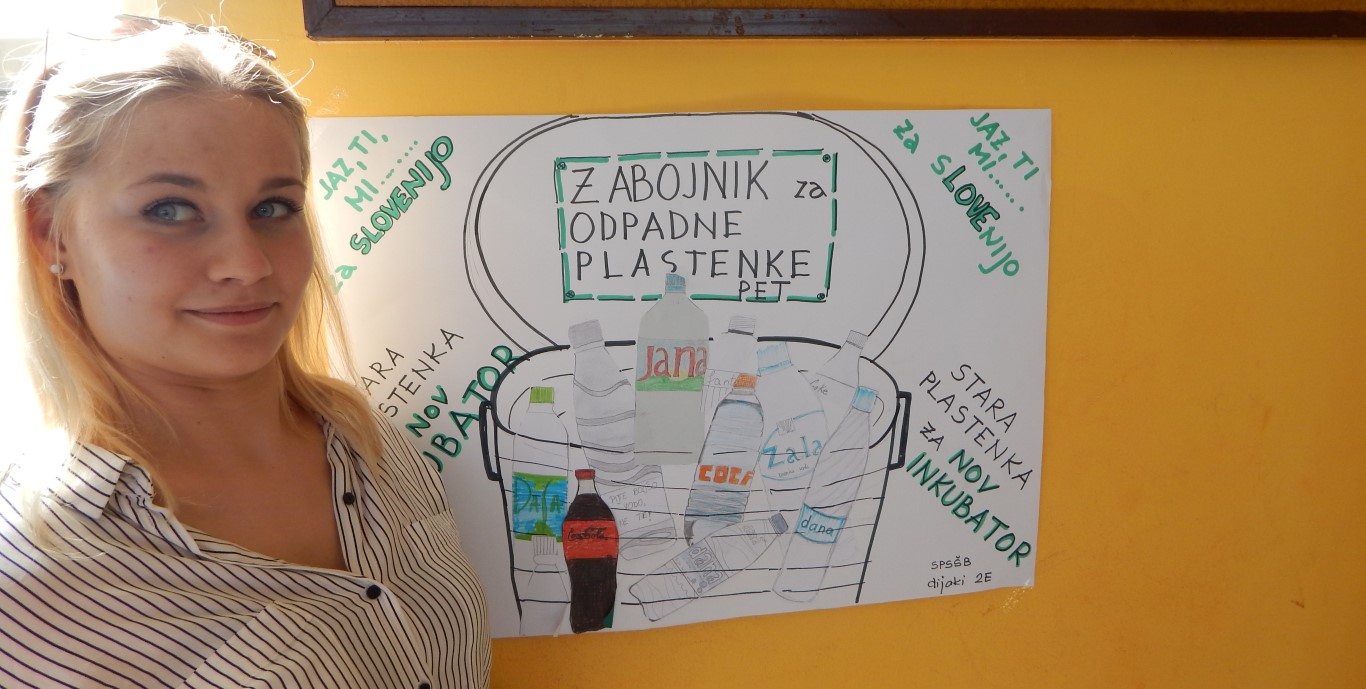 JAZ, TI,
MI.......
za SLOVENIJO
ZABOJNIK za
ODPADNE
PLASTENKE
PET
JAZ, TI
MI......
za SLOVENIJO
NOV
STARA
PLASTENKA
za NOV
INKUBATOR
Jana
Fanta
Cake
Zala
COCA
DANA
Coca Cola
dana
dana
SPSŠB
dijaki 2E